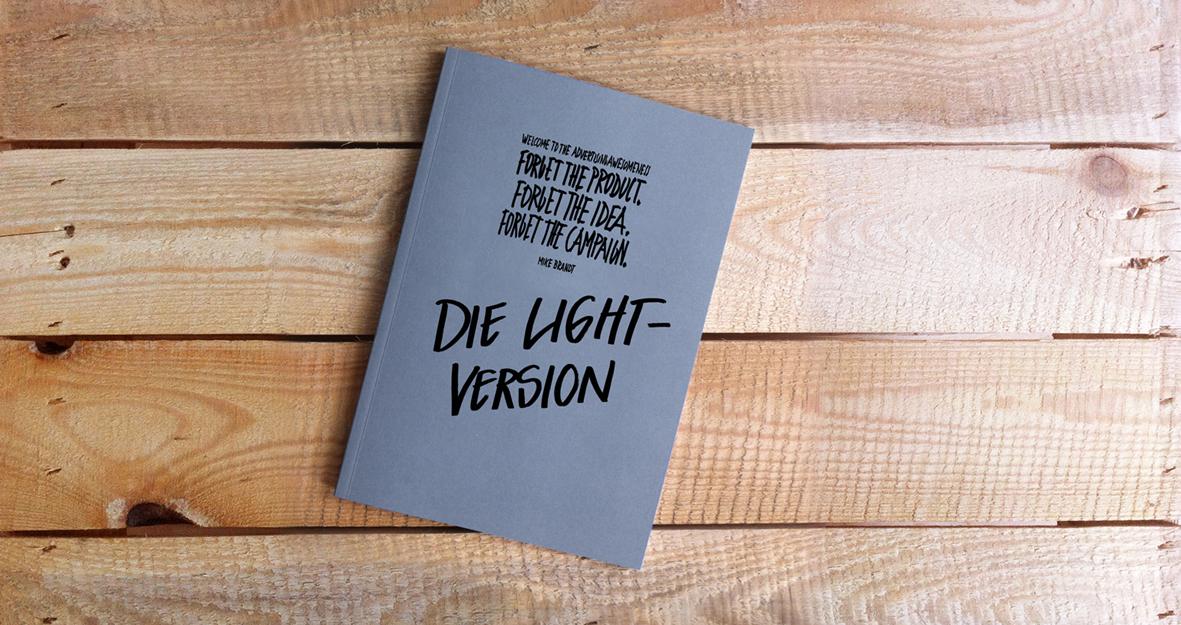 WELCOME TO THE ADVERTISINGAWESOMENESS
FORGET THE PRODUCT.
FORGET THE IDEA.
FORGET THE CAMPAIGN.
MIKE BRANDT
DIE LIGHT-
VERSION